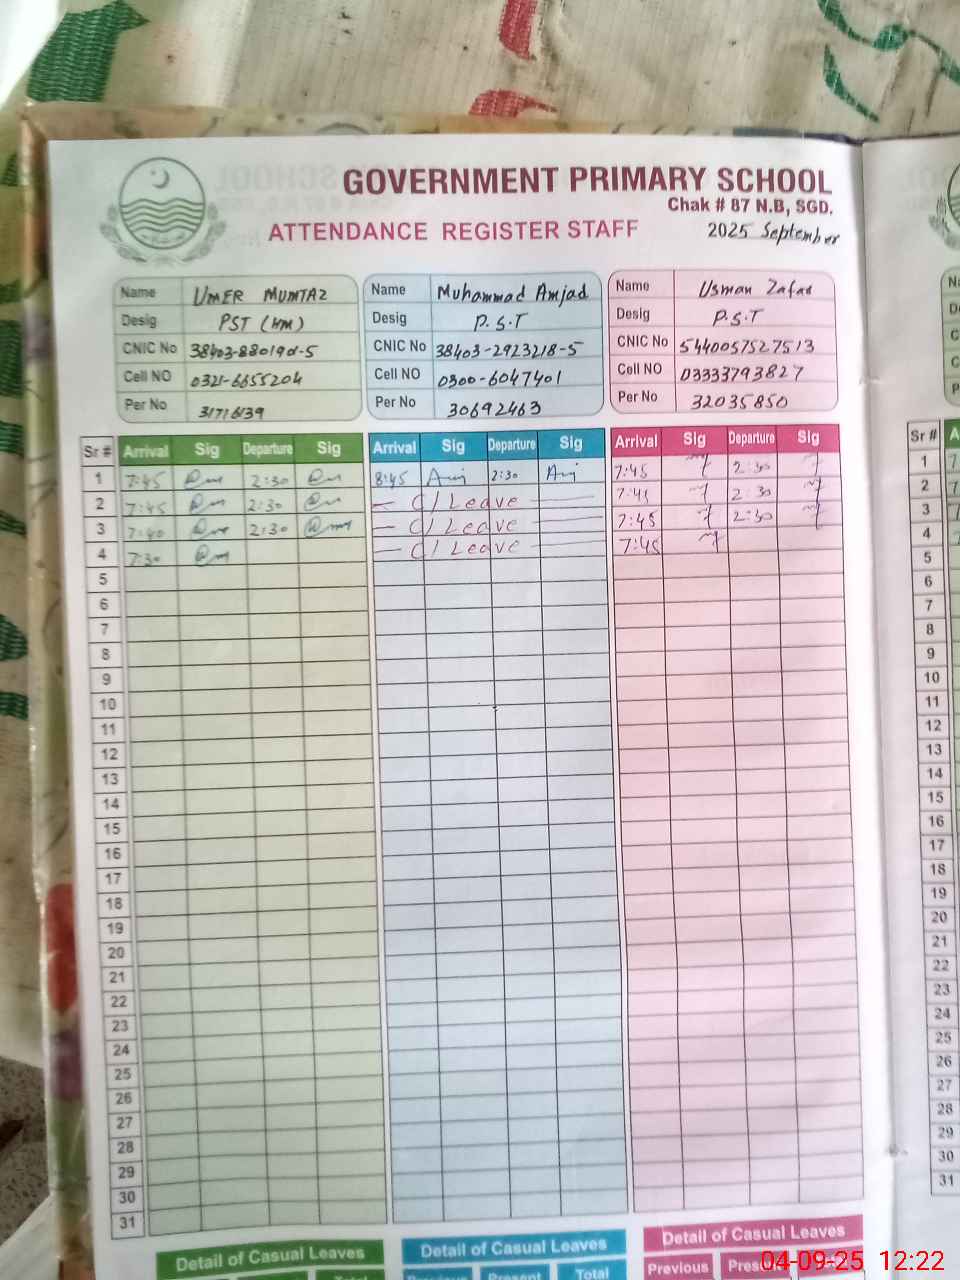 GOVERNMENT PRIMARY SCHOOL
Chak # 87 N.B, SGD.
ATTENDANCE REGISTER STAFF
2025 September
Name UMER MUMTAZ
Desig PST (HM)
CNIC No
Cell NO 0321-6655204
Per No 31716139
Name Muhammad Amjad
Desig P.S.T
CNIC No 38403-2923218-5
Cell NO 0300-6047401
Per No 30692463
Name Usman Zafar
Desig P.S.T
CNIC No 5440057527513
Cell NO 03333793827
Per No 32035850
Sr # Arrival Sig Departure Sig Arrival Sig Departure Sig Arrival Sig Departure Sig Sr #
1 7:45 2:30 8:45 Amj 2:30 Amj 7:45 2:30 1
2 7:45 2:30 C/Leave 7:45 2:30 2
3 7:40 2:30 C/Leave 7:45 2:30 3
4 7:30 C/Leave 7:45 4
5 5
6 6
7 7
8 8
9 9
10 10
11 11
12 12
13 13
14 14
15 15
16 16
17 17
18 18
19 19
20 20
21 21
22 22
23 23
24 24
25 25
26 26
27 27
28 28
29 29
30 30
31 31
Detail of Casual Leaves Detail of Casual Leaves Detail of Casual Leaves
Total Previous Present Total Previous
04-09-25 12:22